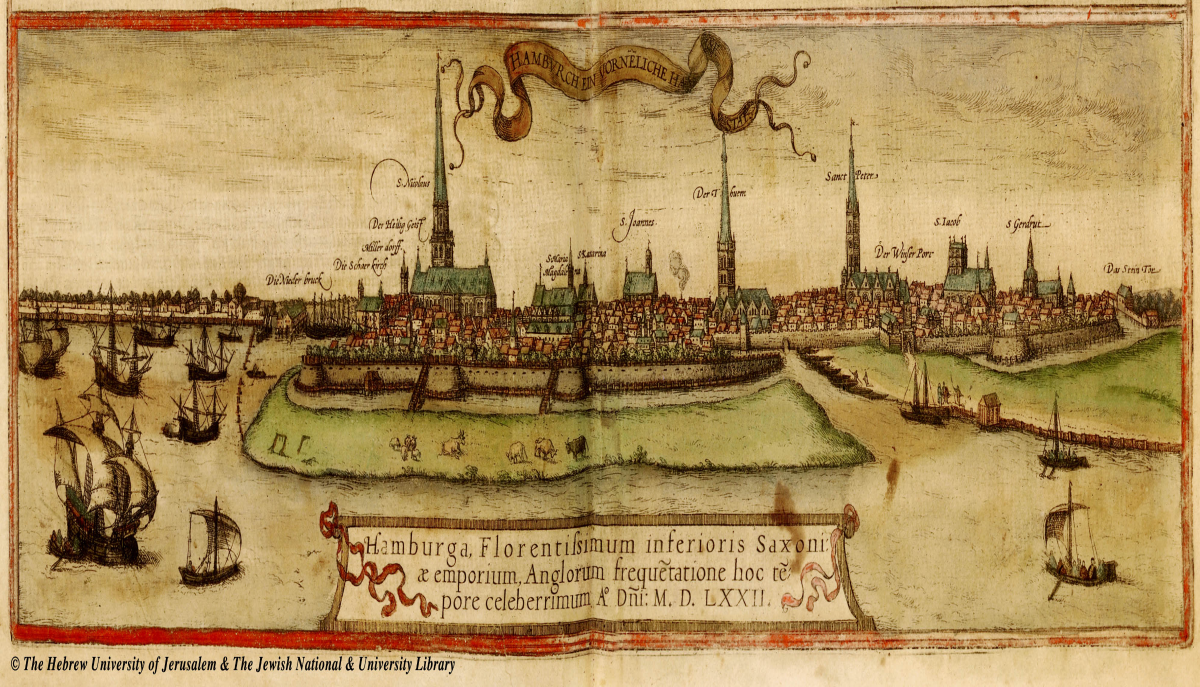 HAMBVRCH EIN VORNELICHE H
S. Nicolaus
Der Heilig Geist
Miller dorff.
Die Schaer kirch
Die Nieder bruck
S. Maria
Magdalena
S. Katarina
S. Joannes.
Der Thuem
Sanct Peter
Der Winser Port
S. Iacob
S Gerdrut
Das Stein Tor
Hamburga, Florentiſsimum inferioris Saxoni:
æ emporium, Anglorum frequẽtatione hoc tẽ
pore celeberrimum, Aº Dñi: M. D. LXXII.
© The Hebrew University of Jerusalem & The Jewish National & University Library